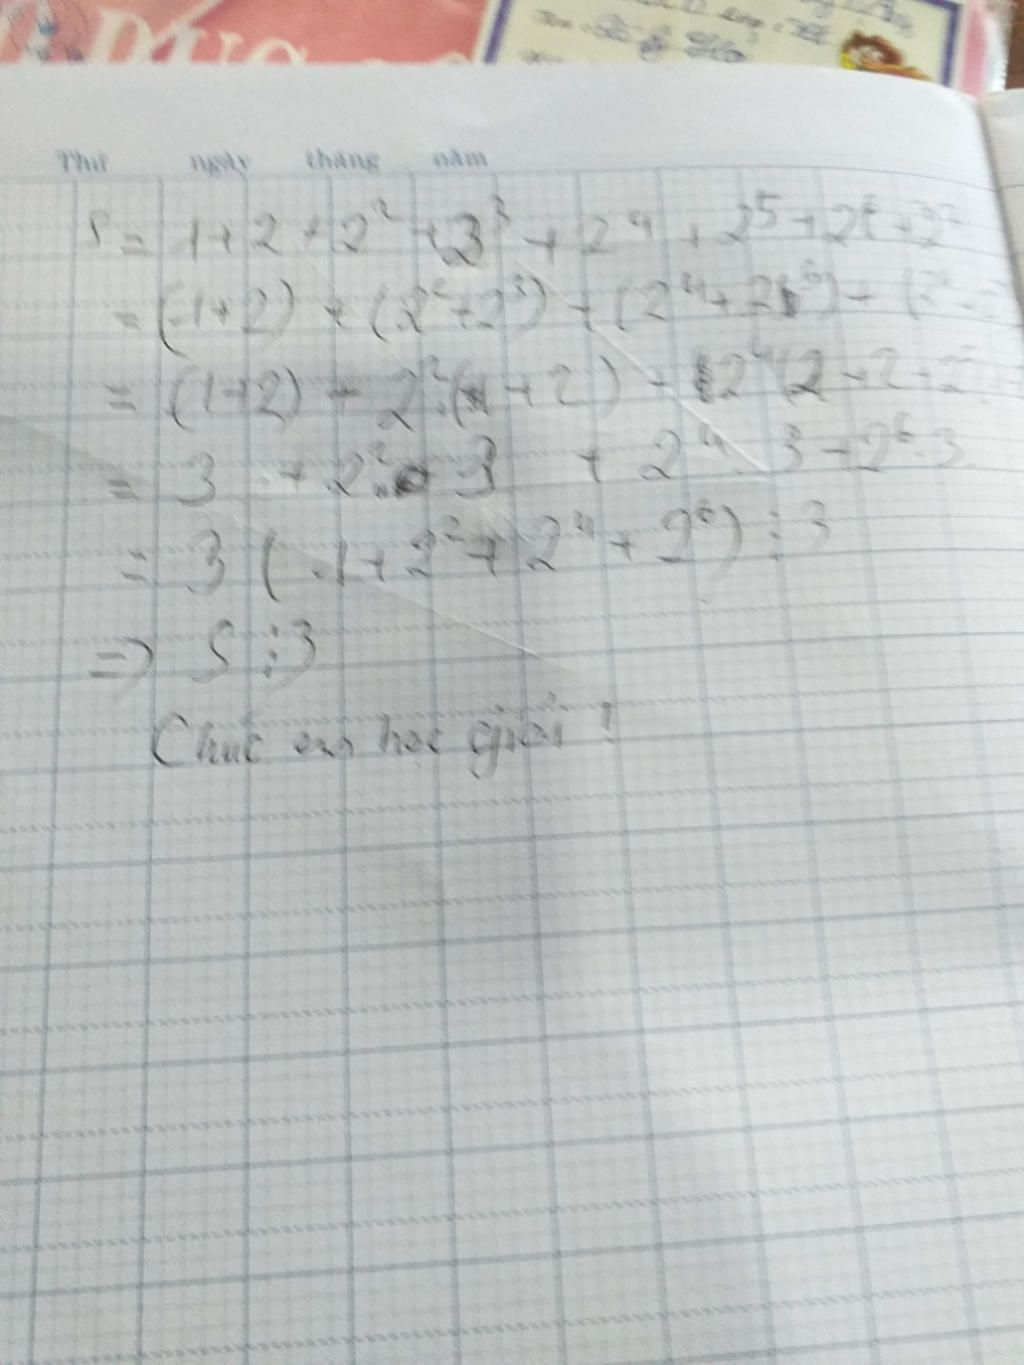 ĐỨC
Thứ ngày tháng năm
S = 1+2+2²+2³+2⁴+2⁵+2⁶+2⁷
= (1+2)+(2²+2³)+(2⁴+2⁵)+(2
= (1+2)+2².(1+2)+2⁴(2+2+2
= 3+2².3+2⁴.3+2⁶.3
= 3(1+2²+2⁴+2⁶)⋮3
=> S⋮3
Chúc em học giỏi!